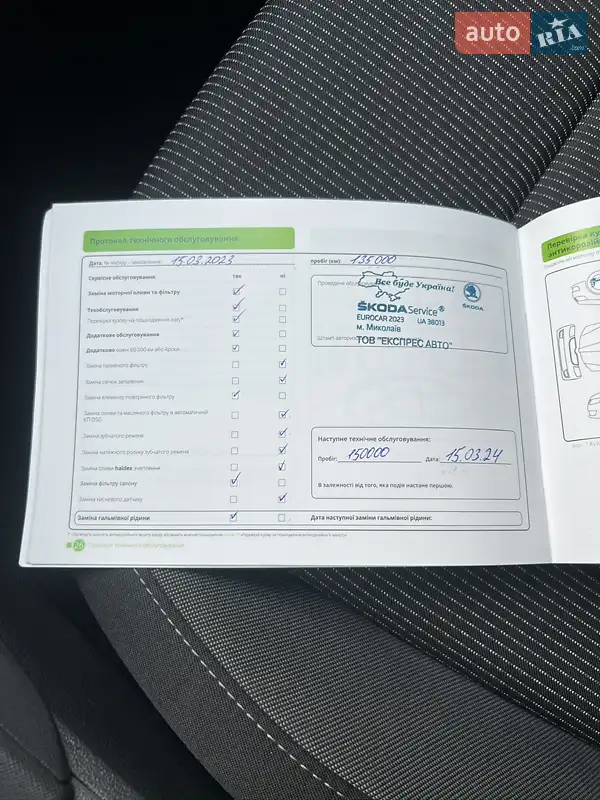 auto RIA .com
Протокол технічного обслуговування
Дата, № наряд - замовлення: 15.03.2023 пробіг (км): 135 000
Сервісне обслуговування: так ні
Проведене обслуговування
Все буде Україна!
Заміна моторної оливи та фільтру
ŠKODA Service® ŠKODA
Техобслуговування
EUROCAR 2023 UA 38013
Перевірка кузову на пошкодження лаку*
м. Миколаїв
Додаткове обслуговування
Штамп
ТОВ "ЕКСПРЕС АВТО"
Додатково кожні 60 000 км або 4 роки
Заміна паливного фільтру
Заміна свічок запалення
Заміна елементу повітряного фільтру
Заміна оливи та масляного фільтру в автоматичній КП DSG
Заміна зубчатого ременя
Заміна натяжного ролику зубчатого ременя
Заміна оливи haldex зчеплення
Заміна фільтру салону
Заміна кисневого датчику
Наступне технічне обслуговування:
Пробіг: 150000 Дата: 15.03.24
В залежності від того, яка подія настане першою.
Заміна гальмівної рідини Дата наступної заміни гальмівної рідини:
26 Протокол технічного обслуговування
Перевірка
антикорозій